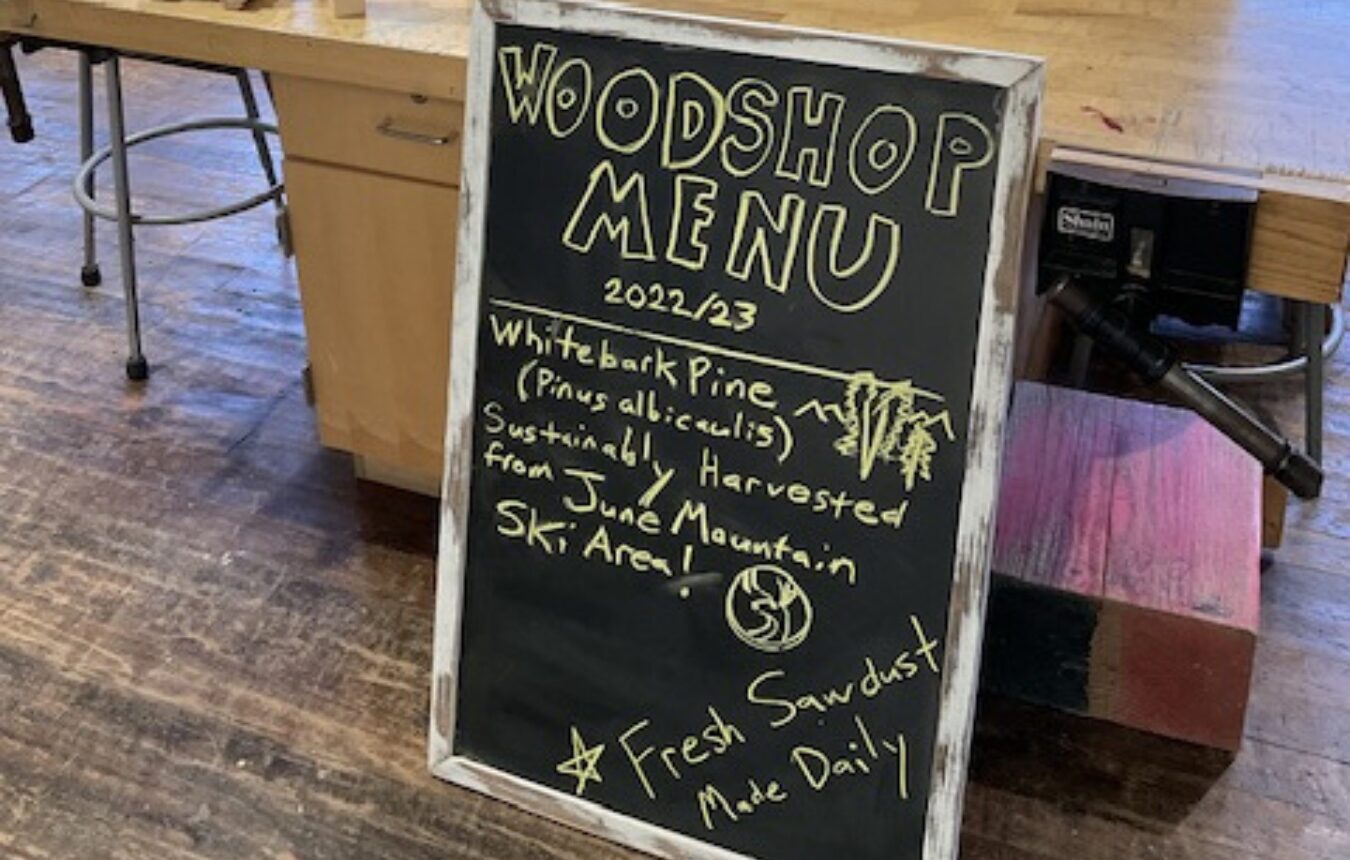 WOODSHOP
MENU
2022/23
Whitebark Pine
(Pinus albicaulis)
Sustainably Harvested
from June Mountain
Ski Area!
Fresh Sawdust
Made Daily
Shain